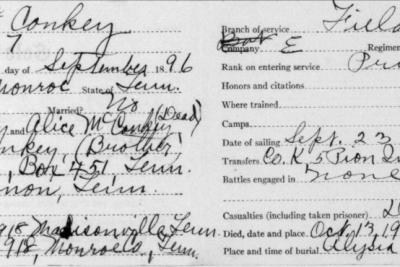 Conkey
7
day of September 1896
Monroe State of Tenn.
Married? No
and Alice McConkey (Dead)
(Brother
Box 751 Tenn.
Tenn.
1918 Madisonville Tenn.
1918, Monroe Co, Tenn.
Branch of service Field
Company E Regiment
Rank on entering service
Honors and citations
Where trained
Camps
Date of sailing Sept. 23
Transfers Co. K, 5 Pion In
Battles engaged in None
Casualties (including taken prisoner)
Died, date and place. Oct 13, 19
Place and time of burial